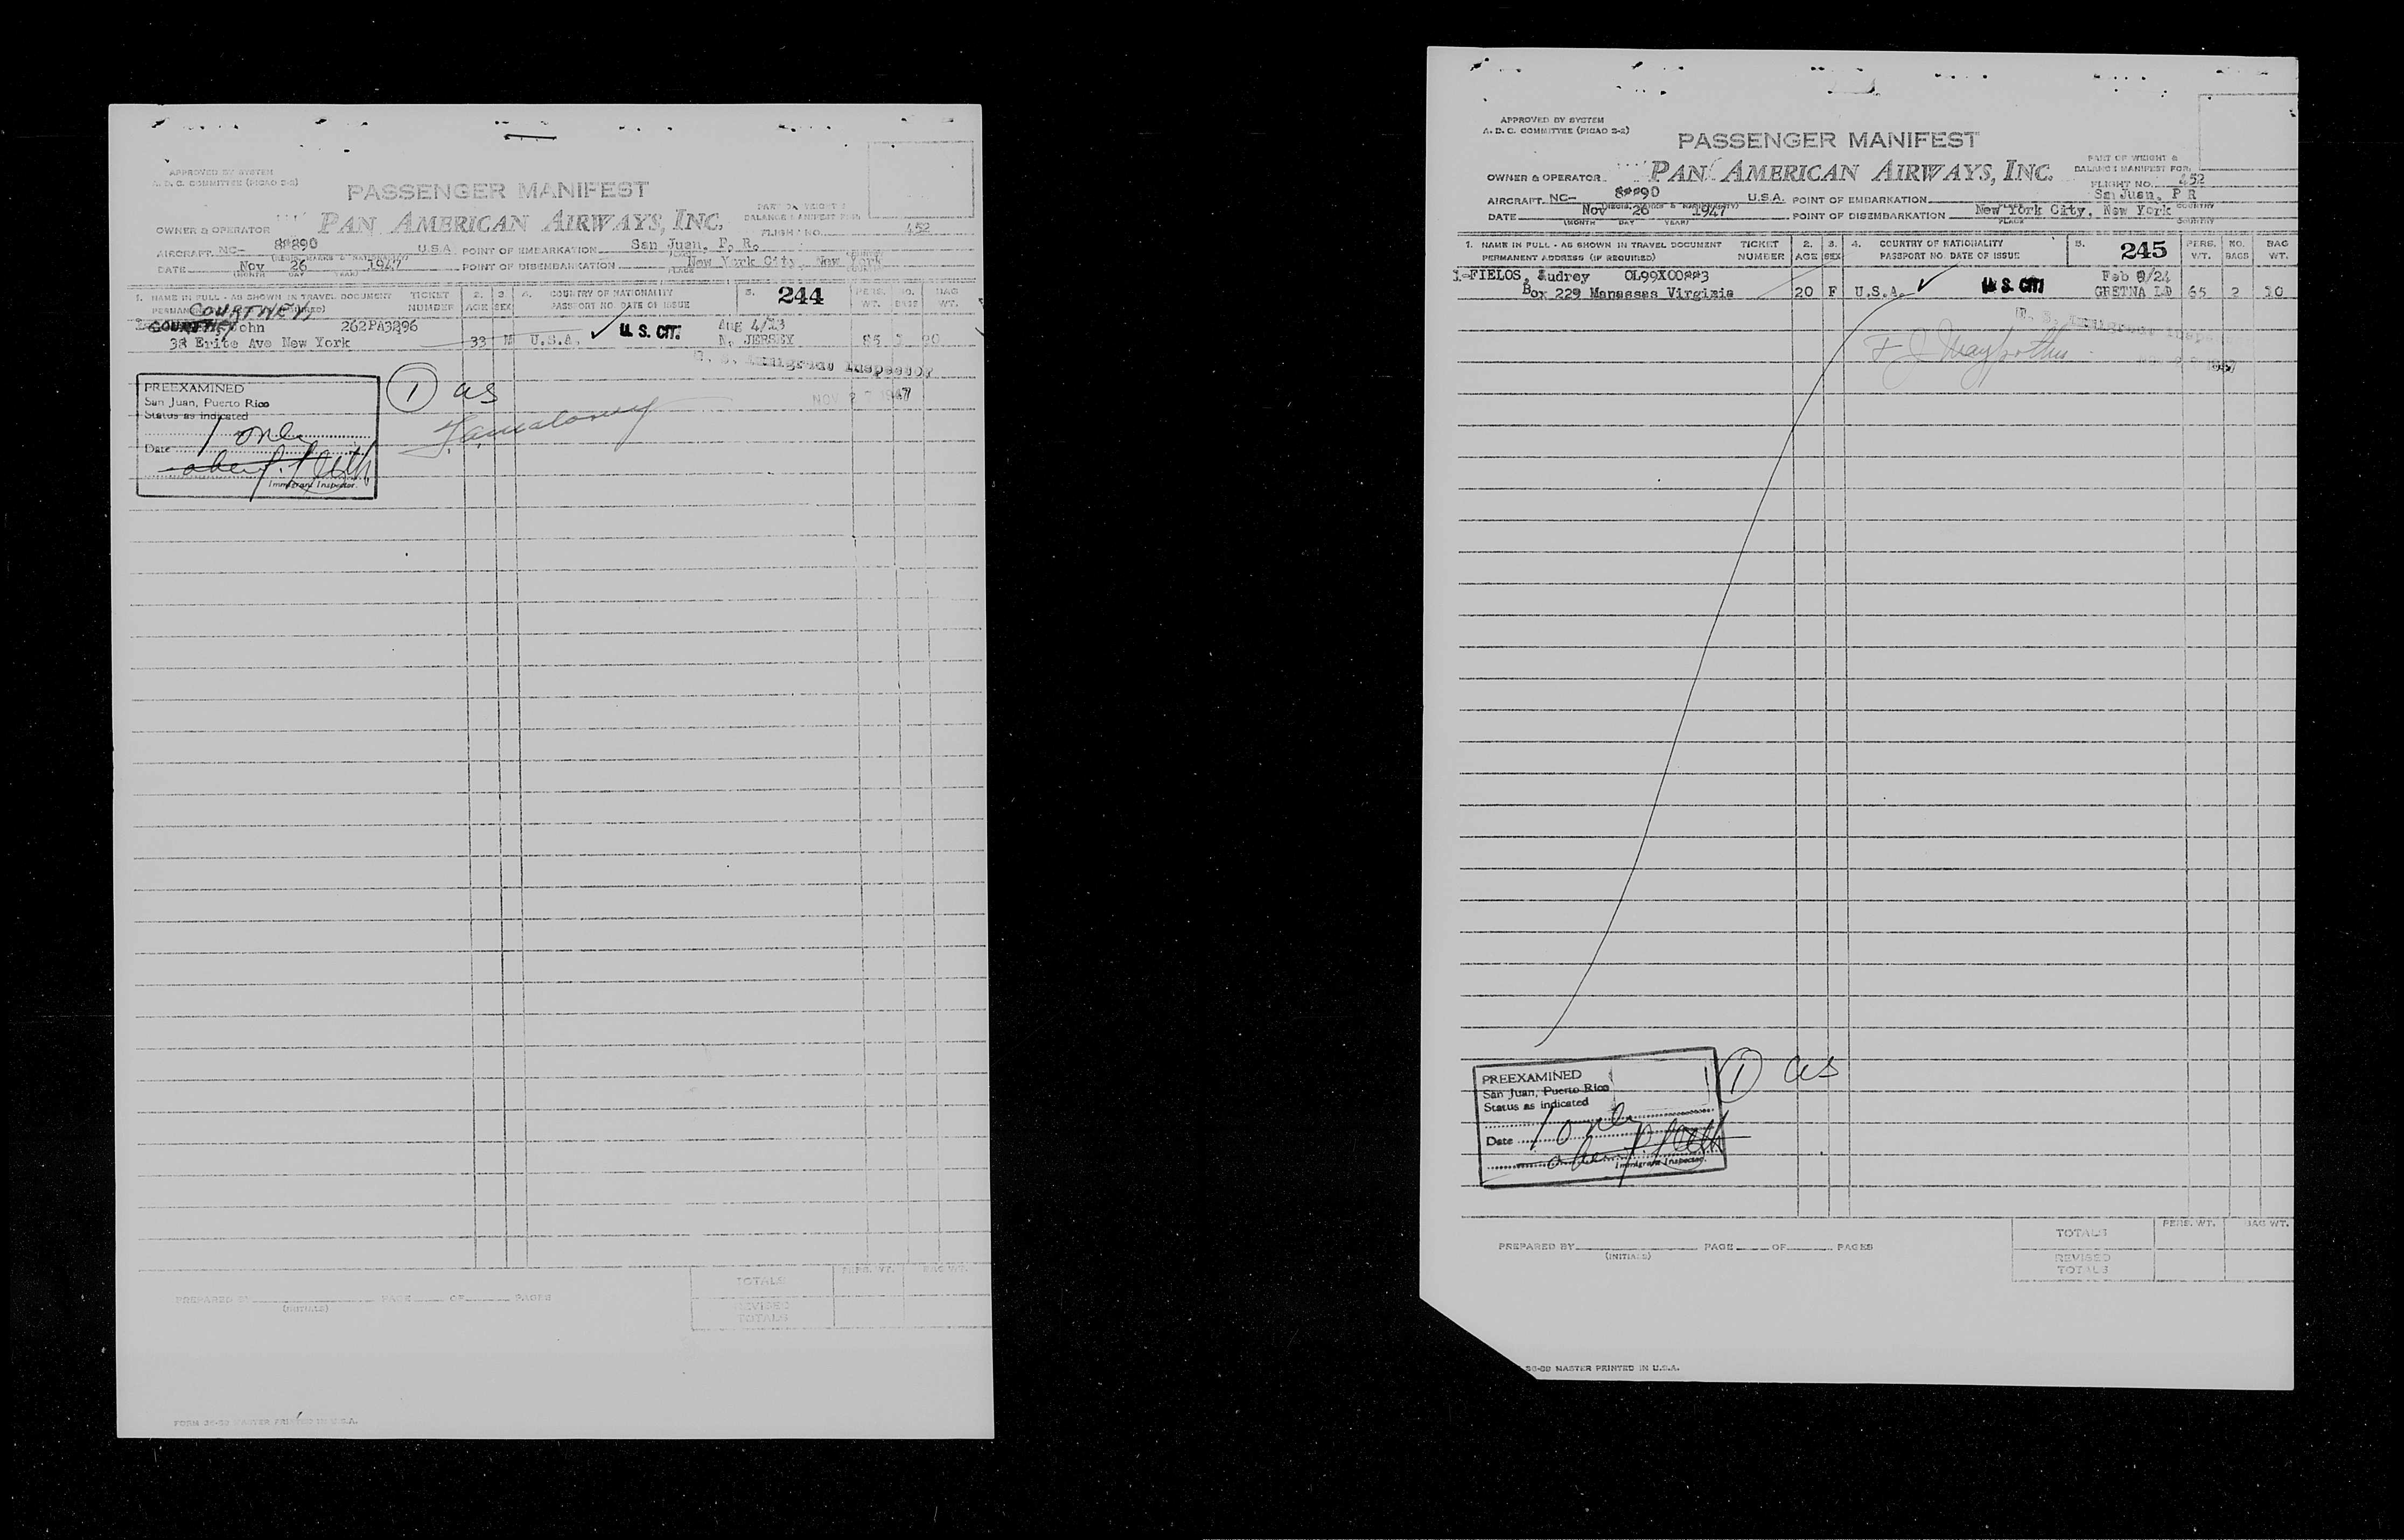 APPROVED BY SYSTEM
A. D. C. COMMITTEE (PICAO S-2)
PASSENGER MANIFEST
PAN AMERICAN AIRWAYS, INC.
PART OF WEIGHT &
BALANCE MANIFEST FOR
OWNER & OPERATOR
FLIGHT NO. 452
AIRCRAFT NC- 88890 U.S.A. POINT OF EMBARKATION San Juan, P. R.
DATE Nov 26 1947 POINT OF DISEMBARKATION New York City, New York
(MONTH DAY YEAR) PLACE COUNTRY
1. NAME IN FULL - AS SHOWN IN TRAVEL DOCUMENT TICKET 2. 3. 4. COUNTRY OF NATIONALITY 5. 244 PERS. NO. BAG
NUMBER AGE SEX PASSPORT NO. DATE OF ISSUE WT. BAGS WT.
COURTNEY
John 262PA3296 Aug 4/13
Ave New York 33 M U.S.A. U. S. CIT. N. JERSEY
U. S. Immigrant Inspector
NOV 1947
PREEXAMINED
San Juan, Puerto Rico
Status as indicated
1 only
Date
Immigrant Inspector.
1 as
TOTALS PERS. WT. BAG WT.
PREPARED BY PAGE OF PAGES
(INITIALS)
REVISED
TOTALS
FORM 36-82 MASTER PRINTED IN U.S.A.
APPROVED BY SYSTEM
A. D. C. COMMITTEE (PICAO S-2)
PASSENGER MANIFEST
PAN AMERICAN AIRWAYS, INC.
PART OF WEIGHT &
BALANCE MANIFEST FOR
OWNER & OPERATOR
FLIGHT NO. 452
AIRCRAFT NC- 88890 U.S.A. POINT OF EMBARKATION San Juan, P R
DATE Nov 26 1947 POINT OF DISEMBARKATION New York City, New York
(MONTH DAY YEAR) PLACE COUNTRY
1. NAME IN FULL - AS SHOWN IN TRAVEL DOCUMENT TICKET 2. 3. 4. COUNTRY OF NATIONALITY 5. 245 PERS. NO. BAG
PERMANENT ADDRESS (IF REQUIRED) NUMBER AGE SEX PASSPORT NO. DATE OF ISSUE WT. BAGS WT.
1-FIELOS, Audrey Feb
Box 229 Manassas Virginia 20 F U.S.A. U. S. CIT GRETNA 65 2
U. S. Immigrant Inspector
1947
PREEXAMINED
San Juan, Puerto Rico
Status as indicated
1 only
Date
Immigrant Inspector.
1 as
TOTALS PERS. WT. BAG WT.
PREPARED BY PAGE OF PAGES
(INITIALS)
REVISED
TOTALS
MASTER PRINTED IN U.S.A.